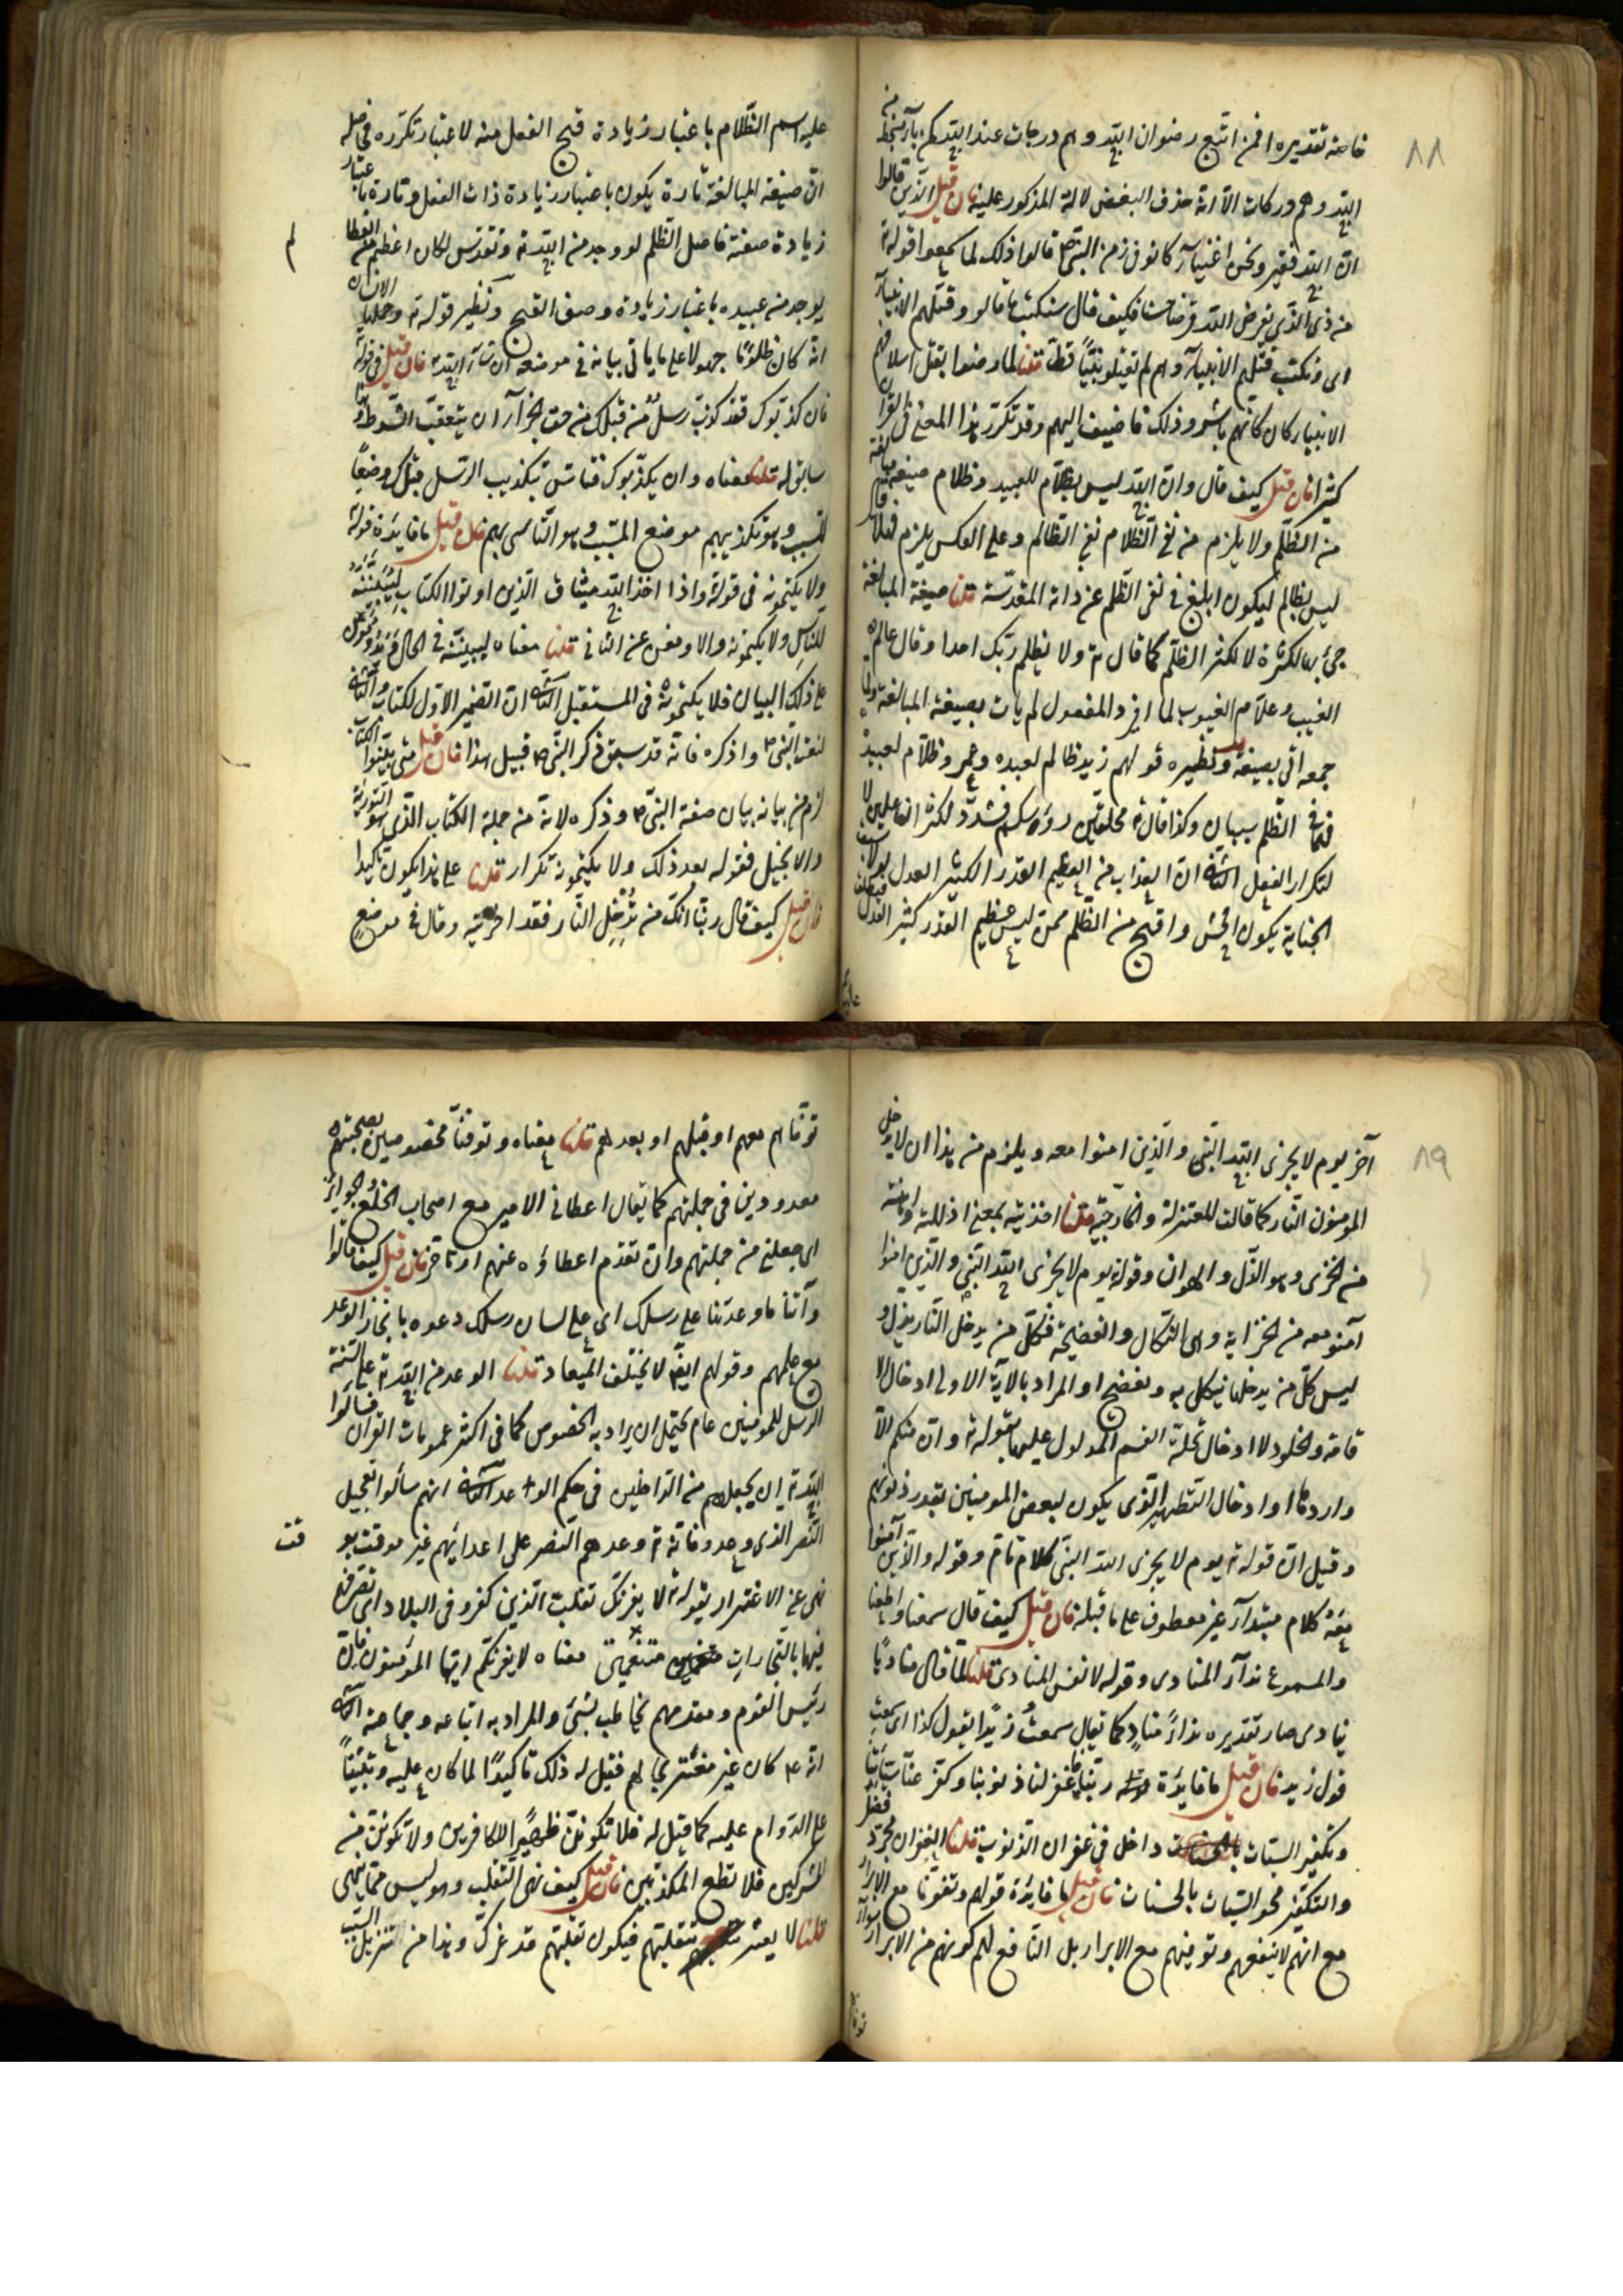 ٨٨
خاصة تقديره افمن اتبع رضوان الله وهم درجات عند الله كمن باء بسخط من
الله وهم دركات الا انه حذف البعض لدلالة المذكور عليه فان قيل الذين قالوا
ان الله فقير ونحن اغنياء كانوا في زمن النبي ص قالوا ذلك لما سمعوا قوله ت
من ذي الذي يقرض الله قرضا حسنا فكيف قال سنكتب ما قالوا وقتلهم الانبياء
اى ونكتب قتلهم الانبياء وهم لم يقتلوا نبيًا قط قلنا لما رضوا بقتل اسلافهم
الانبياء كان كانهم باشروا ذلك فاضيف اليهم وقد تكرر هذا المعنى في القرآن
كثيرا فان قيل كيف قال وان الله ليس بظلام للعبيد وظلام صيغة مبالغة
من الظلم ولا يلزم من نفى الظلام نفى الظالم وعلى العكس يلزم فهلا قال
ليس بظالم ليكون ابلغ في نفى الظلم عن ذاته المقدسة قلنا صيغة المبالغة
جئ بها لكثرة العبيد لا لكثرة الظلم كما قال ت ولا يظلم ربك احدا وقال عالم
الغيب وعلام الغيوب لما افرد المفعول لم يات بصيغة المبالغة ولما
جمعه اتى بصيغة ونظيره قولهم زيد ظالم لعبده وعمر وظلام لعبيده
فهما في الظلم سيان وكذا قال ت محلقين رؤسكم فشدد لكثرة الفاعلين لا
لتكرار الفعل الثانى ان العذاب من العظيم القدر الكثير العدل لولا سبق
الجناية يكون افحش واقبح من الظلم ممن ليس عظيم القدر كثير العدل فيطلق
عليه اسم الظلام باعتبار زيادة قبح الفعل منه لا عتبار تكرره فحاصله
ان صيغة المبالغة تارة يكون باعتبار زيادة ذات الفعل وتارة باعتبار
زيادة صفته فاصل الظلم لو وجد من الله ت وتقدس لكان اعظم من الف ظلم
يوجد من عبيده باعتبار زيادة وصف القبح ونظير قوله ت وحملها الانسان
انه كان ظلومًا جهولا على ما ياتى بيانه في موضعه ان شاء الله ت فان قيل في قوله
فان كذبوك فقد كذب رسلٌ من قبلك من حق الجزاء ان يتعقب الشرط وهذا
سابق له قلنا معناه وان يكذبوك فتاس بتكذيب الرسل قبلك وضعًا
للسبب وهو تكذيبهم موضع المسبب وهو التاسى بهم فان قيل ما فايدة قوله
ولا يكتمونه فى قوله واذا اخذ الله ميثاق الذين اوتوا الكتاب لتبيننه
للناس ولا يكتمونه والاول مغن عن الثانى قلنا معناه ليبيننه فى الحال ويدومون
على ذلك البيان فلا يكتمونه في المستقبل الثانى ان الضمير الاول للكتاب والثانى
لنعت النبى ص وذكره فانه قد سبق ذكر النبى ص قبيل هذا فان قيل متى بينوا الكتاب
لزم من بيانه بيان صفة النبى ص وذكره لانه من جملة الكتاب الذى هو التورية
والانجيل فقوله بعد ذلك ولا يكتمونه تكرار قلنا على هذا يكون تاكيدا
فان قيل كيف قال ربنا انك من تُدْخِل النار فقد اخزيته وقال في موضعٍ
٨٩
آخر يوم لا يخزى الله النبى والذين امنوا معه ويلزم من هذا ان لا يدخل
المؤمنون النار كما قالت المعتزلة والخارجية قلنا اخزيته بمعنى اذللته واهنته
من الخزى وهو الذل والهوان وقوله يوم لا يخزى الله النبى والذين امنوا
آمنوا معه من الخزاية وهى النكال والفضيحة فكل من يدخل النار يذل و
ليس كل من يدخلها ينكل به ويفضح او المراد بالآية الاولى ادخال الا
قامة والخلود لا ادخال تحلة القسم المدلول عليها بقوله ت وان منكم الا
واردها او ادخال التطهير الذى يكون لبعض المومنين بقدر ذنوبهم
وقيل ان قوله ت يوم لا يخزى الله النبى كلام تام وقوله والذين آمنوا
معه كلام مبتداء غير معطوف على ما قبله فان قيل كيف قال سمعنا
والمسموع نداء المنادى وقوله لا نفس المنادى قلنا لما قال مناديًا
ينادى صار تقديره نداءَ منادٍ كما يقال سمعتُ زيدًا يقول كذا اى سمعت
قول زيد فان قيل ما فايدة قوله ربنا فاغفر لنا ذنوبنا وكفر عنا سيأتنا
وتكفير السيات داخل في غفران الذنوب قلنا الغفران مجرد فضل
والتكفير محو السيات بالحسنات فان قيل ما فايدة قولهم وتوفنا مع الابرار
مع انهم لا ينفعهم وتوفيهم مع الابرار بل النافع لهم كونهم من الابرار سواء
توفاهم معهم او قبلهم او بعدهم قلنا معناه وتوفنا مخصوصين بصحبتهم
معدودين في جملتهم كما يقال اعطانى الامير مع اصحاب الخلع والجوائز
اى جعلنى من جملتهم وان تقدم اعطاؤه عنهم او تاخر فان قيل كيف قالوا
وآتنا ما وعدتنا على رسلك اى على لسان رسلك دعوه بانجاز الوعد
مع علمهم وقولهم ايضا لا يخلف الميعاد قلنا الوعد من الله ت على السنة
الرسل للمومنين عام يحتمل ان يراد به الخصوص كما فى اكثر عمومات القران فسالوا
الله ت ان يجعلهم من الداخلين في حكم الوعد الثانى انهم سألوا تعجيل
النصر الذى وعدوا فانه ت وعدهم النصر على اعدائهم غير موقت بوقت
نهى عن الاغترار بقوله ت لا يغرنك تقلب الذين كفروا فى البلاد اى تصرفهم
فيها بالتجارات متنعمين معناه لا يغرنكم ايها المؤمنون فان
رئيس القوم ومقدمهم يخاطب بشئ والمراد به اتباعه وجماعته الثانى
انه ع كان غير مغترٍ بهم فقيل له ذلك تاكيدًا لما كان عليه وتثبيتًا
على الدوام عليه كما قيل له فلا تكونن ظهيرًا للكافرين ولا تكونن من
المشركين فلا تطع المكذبين فان قيل كيف نهى التقلب وهو ليس مما ينهى
قلنا لا يغتر بتقلبهم فيكون تقلبهم قد غرك وهذا من تنزيل السبب